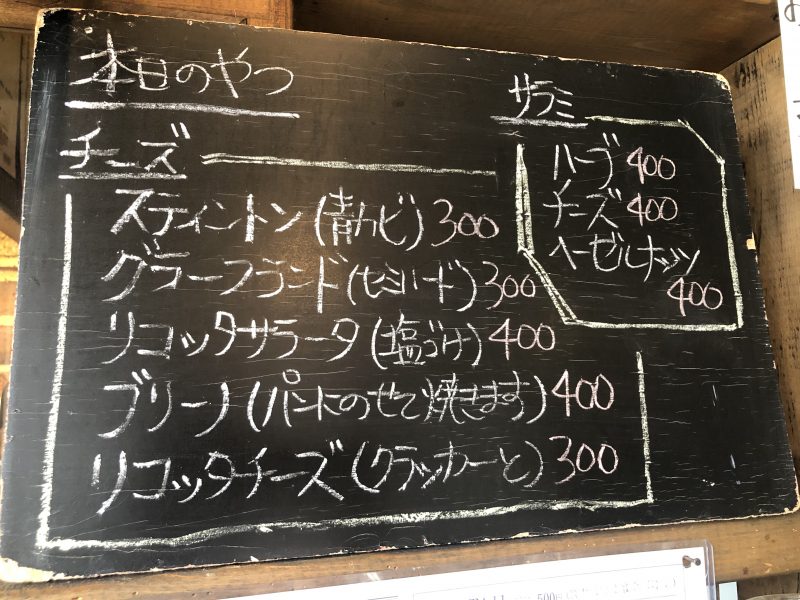 本日のやつ
チーズ
スティントン(青カビ)300
グラーフランド(セミハード)300
リコッタサラータ(塩づけ)400
ブリーノ(パートのせて焼きます)400
リコッタチーズ(クラッカーと)300
サラミ
ハーブ400
チーズ400
ヘーゼルナッツ
400